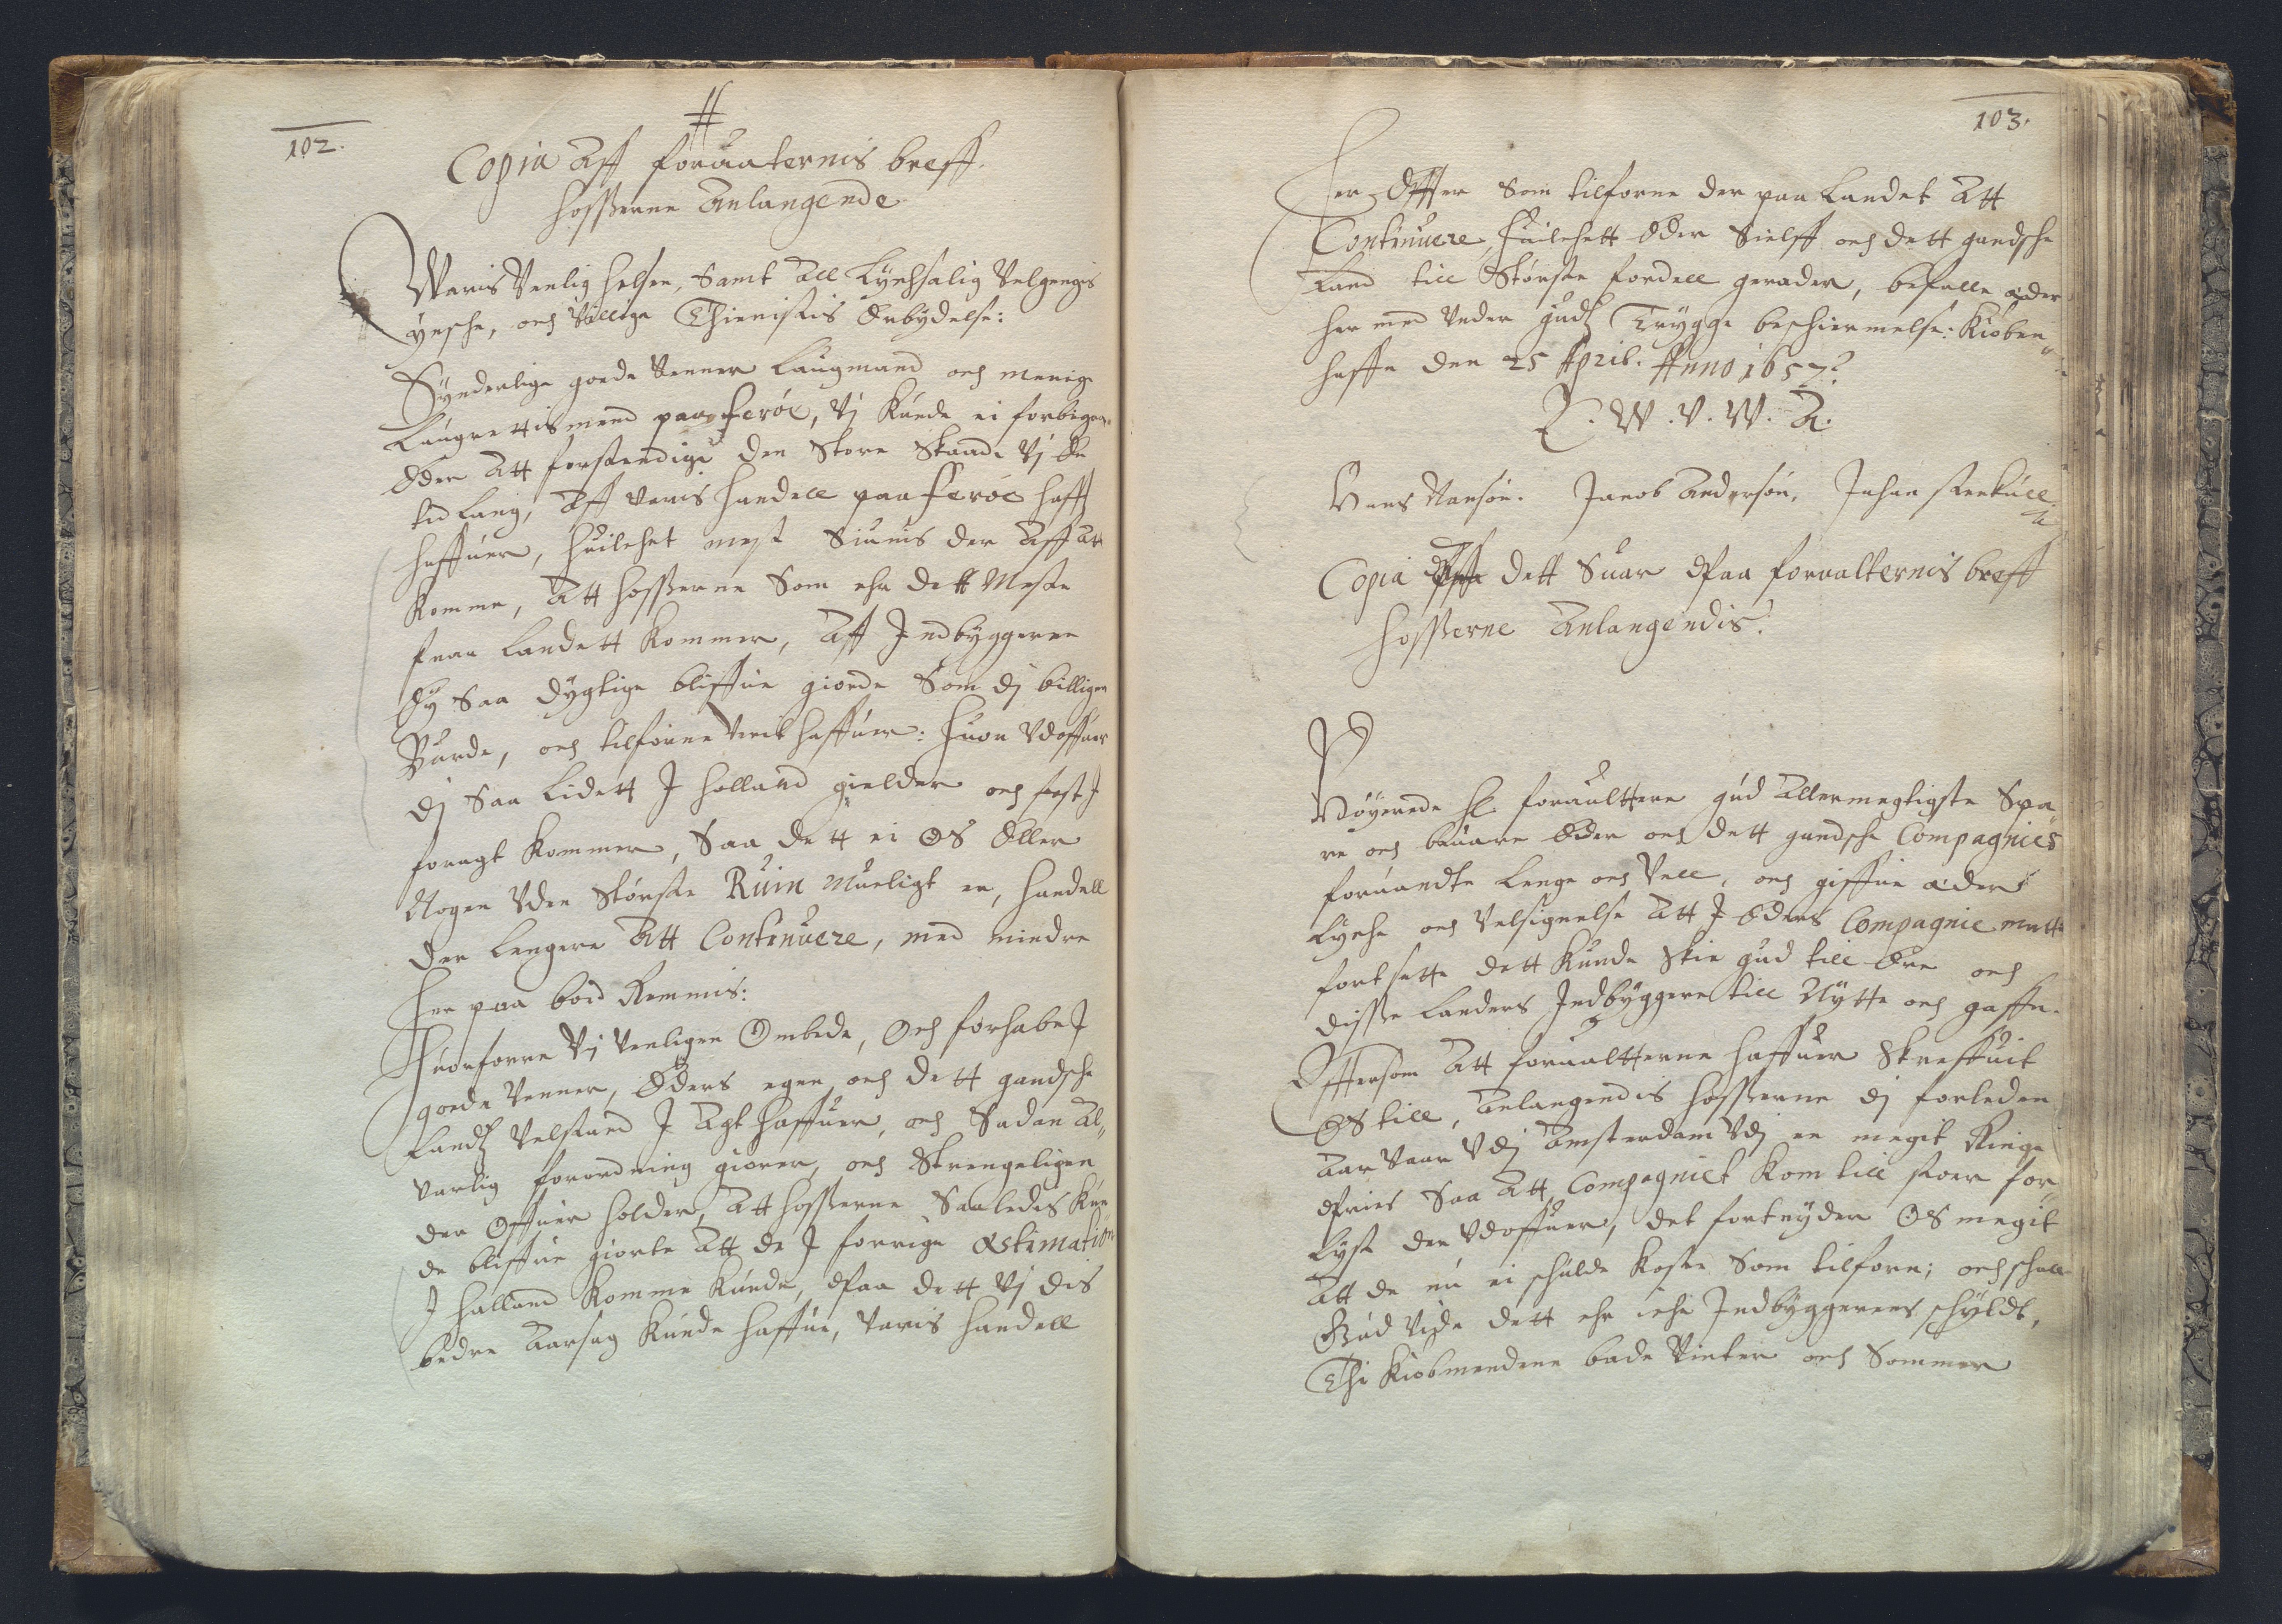 102.
Copia Aff foruaternis breff
hosserne Anlangende
Woris Venlig helsen, Samt All Lychsalig Velgengis
ynsche, och Villige Thienistis Erbydelse:
Synderlige goede Venner Laugmand och menige
Laugrettismend paa Feröe, Vj Kunde ei forbigaa
Eder Att forstendige den Store Skaade Vj En
tid lang, Aff Voris handell paa Feröe hafft
haffuer, huilchet mest Siunis der Aff At
Komme, Att hosserne Som ehr dett Meste
fraa Landett Kommer, Aff Indbyggerne
Ey Saa dygtige bliffue giorde Som dj billigen
Burde, och tilforne Verit haffuer: Huor Vdoffuer
dj Saa Lidett J Holland gielder och
foragt Kommer, Saa dett ei OS Eller
Nogen Vden Störste Ruin Mueligt er, handell
der lengere Att Continuere, med mindre
her paa bod Remmis:
Huorforre Vj Venligen Ombede, Och forhabe J
goede Venner, Eders egen och dett gandsche
Landtz Velstand J Agt haffuer, och Sadan Al„
Vorlig forordning giorer, och Strengeligen
der Offuer holder, Att hosserne Saaledis Kun„
de bliffue giorte Att de J forrige Æstimation
J Holland Komme Kunde, Paa dett Vj dis
bedre Aarsag Kunde haffue, Voris handell
103.
her Effter Som tilforne der paa Landet Att
Continuere, Huilchett Eder Sielff och dett gandsche
Land till Störste fordell gerader, befalle eder
her med Vnder Gudtz Trygge beschiermelse: Kiöben„
haffn den 25 April. Anno 1657
E. W. V. W. A.
Hans Nansön. Jacob Andersön, Johan
Copia dett Suar Paa foruallternis breff
hosserne Anlangendis.
foruallttere Gud Allermegtigste Spa„
re och beuare Eder och dett gandsche Compagnies
foruandte Lenge och Vell, och giffue eder
Lyche och Velsignelse Att J Eders Compagnie maatte
fortsette dett Kunde Skie Gud till Ære och
disse Landers Indbyggere till Nytte och gaffn.
Effterson Att foruallterne haffuer Skreffuit
OS till, Anlangendis hosserne dj forleden
Aar Vaar Vdj Amsterdam Vdj en megit Ringe
Priis Saa Att Compagniet Kom till stoer for„
Lyst der Vdoffuer, det fortryder OS megit
Att de nu ei schulde Koste Som tilforn; och schall
Gud Vide dett ehr iche Indbyggernes schyldt,
Thi Kiöbmendene bade Vinter och Sommer